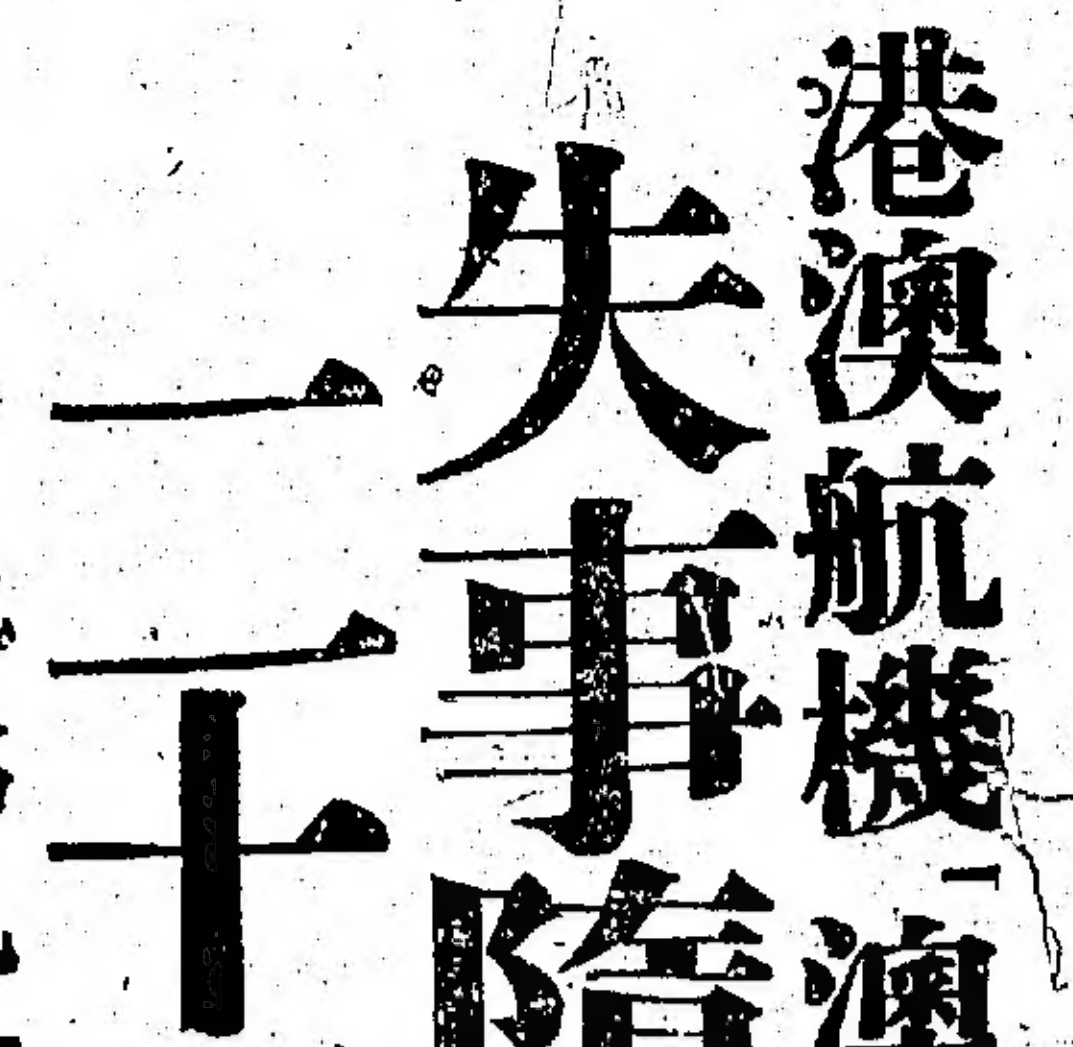 港澳航機「澳
失事
二十